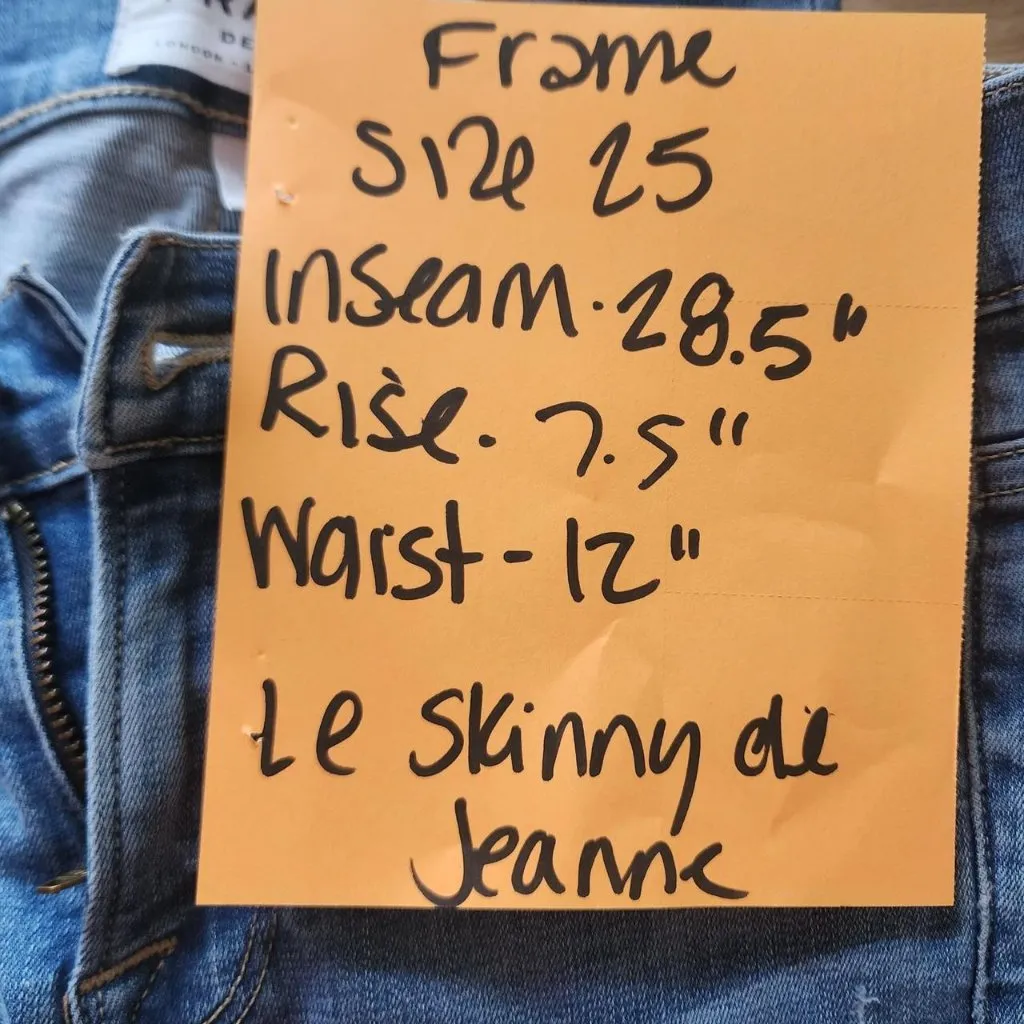 DE
LONDON
Frame
Size 25
Inseam. 28.5"
Rise. 7.5"
Waist - 12"
Le Skinny de
Jeanne